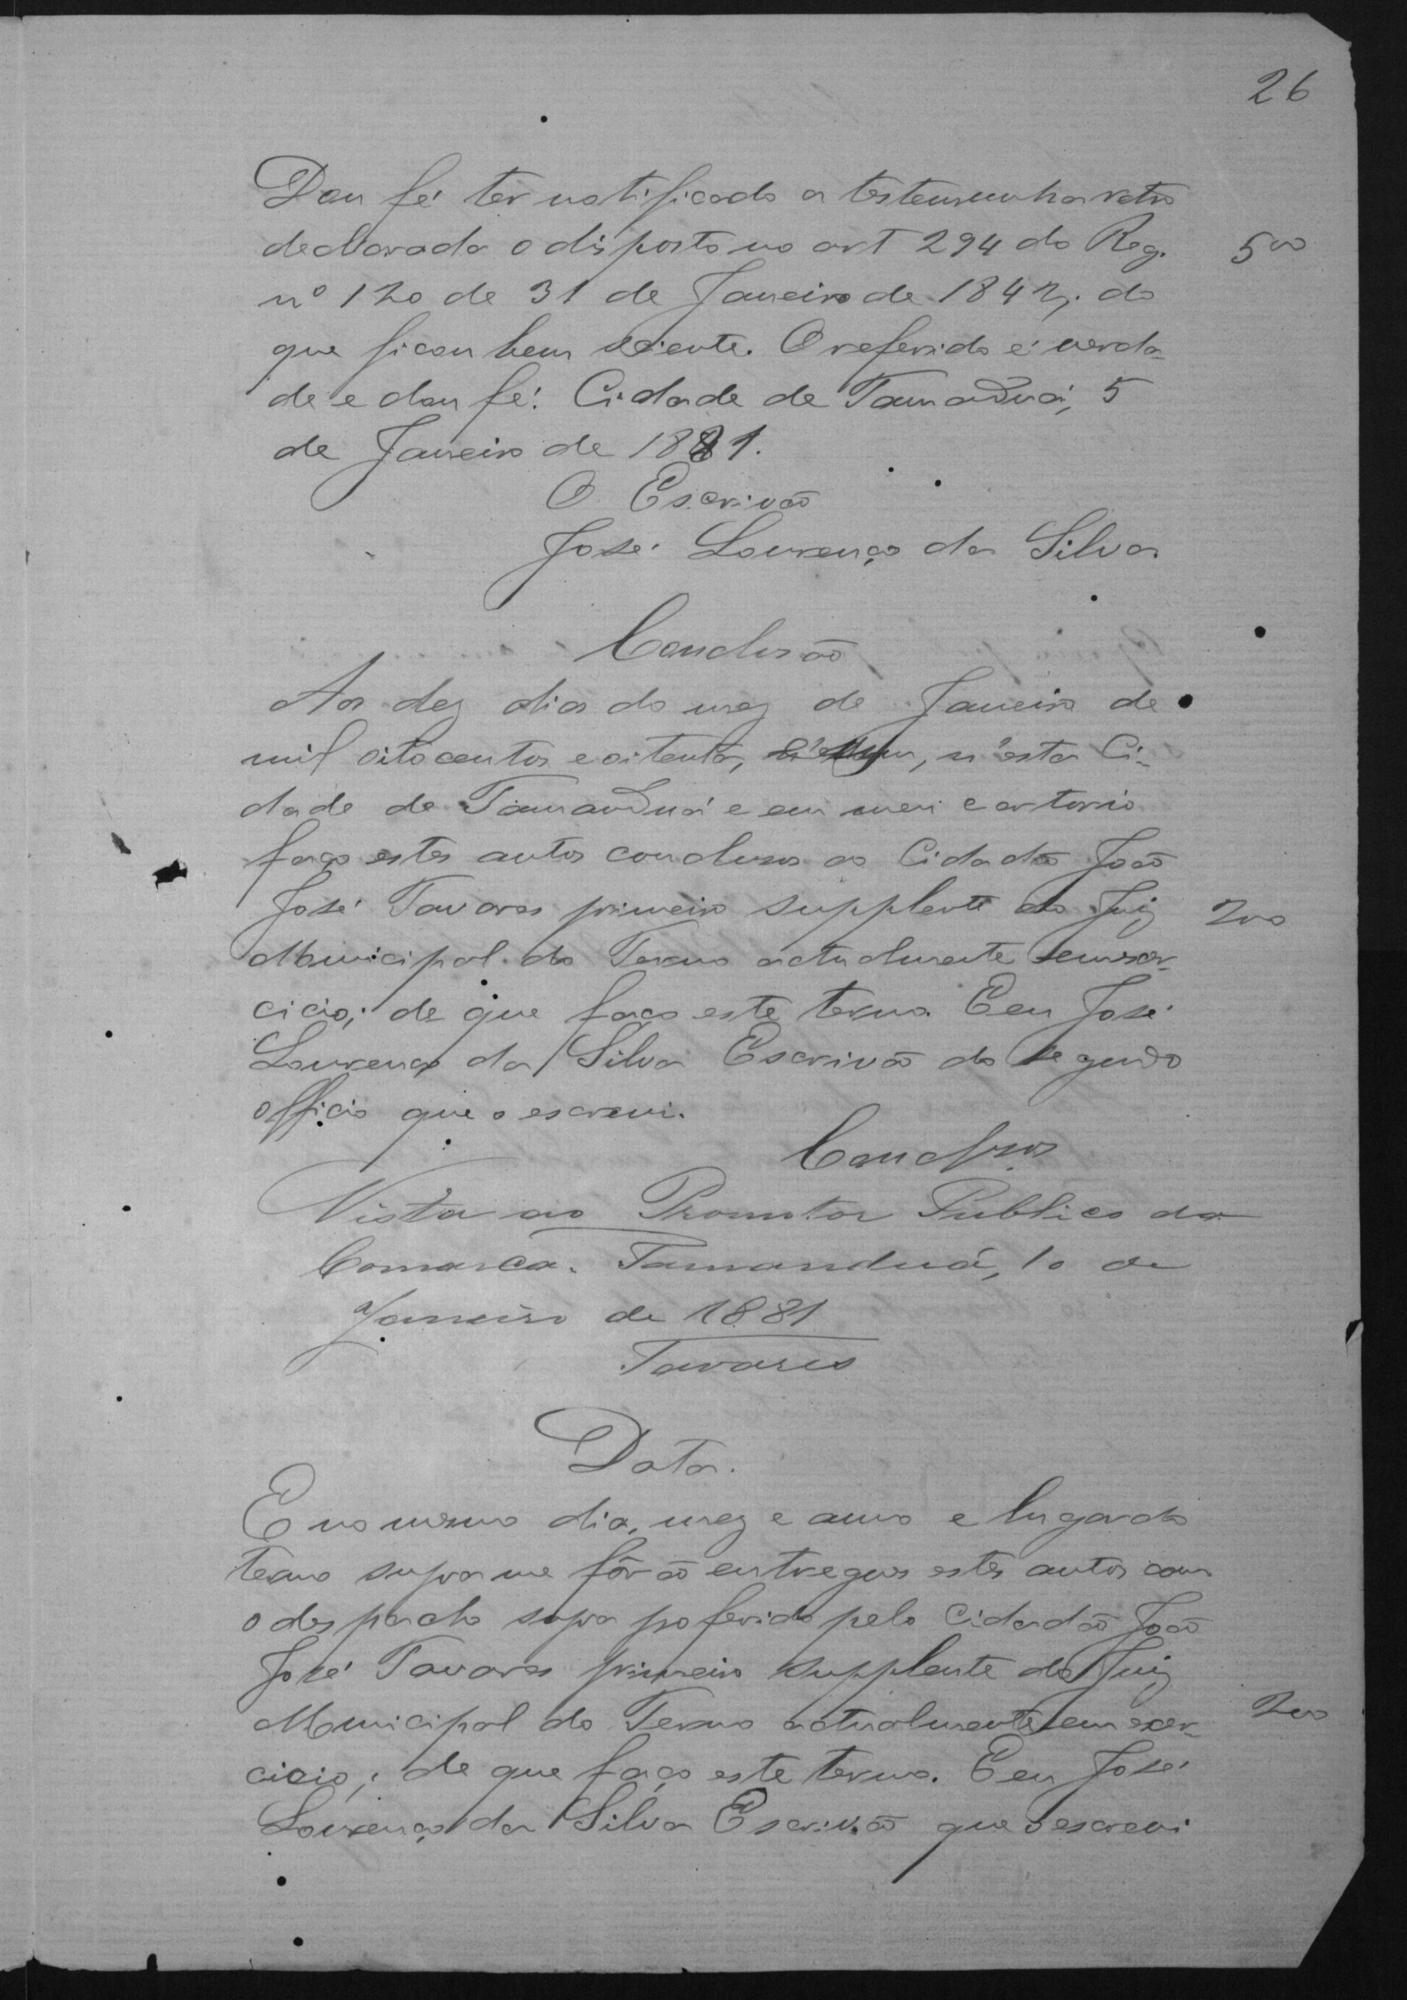 26
Dou fé ter notificado a testemunha retro
declarada o disposto no art 294 do Reg. 500
nº 120 de 31 de Janeiro de 1842, do
que ficou bem sciente. O referido é verda-
de e dou fé. Cidade de Tamanduá, 5
de Janeiro de 1881.
O Escrivão
José Lourenço da Silva
Conclusão
Aos dez dias do mez de Janeiro de
mil oitocentos e oitenta, e um, n'esta Ci-
dade de Tamanduá e em meu cartorio
faço estes autos conclusos ao Cidadão João
José Tavares primeiro supplente do Juiz 200
Municipal do Termo actualmente em exer-
cicio; de que faço este termo. E eu José
Lourenço da Silva Escrivão do segundo
officio que o escrevi.
Conclusos
Vista ao Promotor Publico da
Comarca. Tamanduá, 10 de
Janeiro de 1881
Tavares
Data.
E no mesmo dia, mez e anno e lugar do
termo supra me fôrão entregues estes autos com
o despacho supra proferido pelo Cidadão João
José Tavares primeiro supplente do Juiz
Municipal do Termo actualmente em exer- 200
cicio; de que faço este termo. E eu José
Lourenço da Silva Escrivão que o escrevi